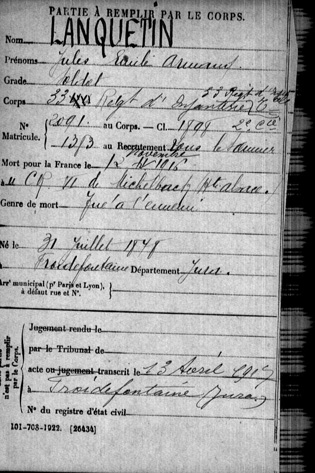 PARTIE À REMPLIR PAR LE CORPS.
Nom LANQUETIN
Prénoms Jules Emile
Grade Soldat
Corps 33 Régt d'Infanterie
N° 2091 au Corps. — Cl. 1898 2e Cie
Matricule. 1313 au Recrutement Lons le Saunier
Mort pour la France le 12 Novembre 1915
Michelbach Hte alsace.
Genre de mort Tué à l'ennemi
Né le 31 Juillet 1878
à Froidefontaine Département Jura.
Arrt municipal (pr Paris et Lyon),
à défaut rue et N°.
Jugement rendu le
par le Tribunal de
acte ou jugement transcrit le 13 Avril 1917
à Froidefontaine Jura
N° du registre d'état civil
101-708-1922. [26434]
n'est pas à remplir
par le Corps.